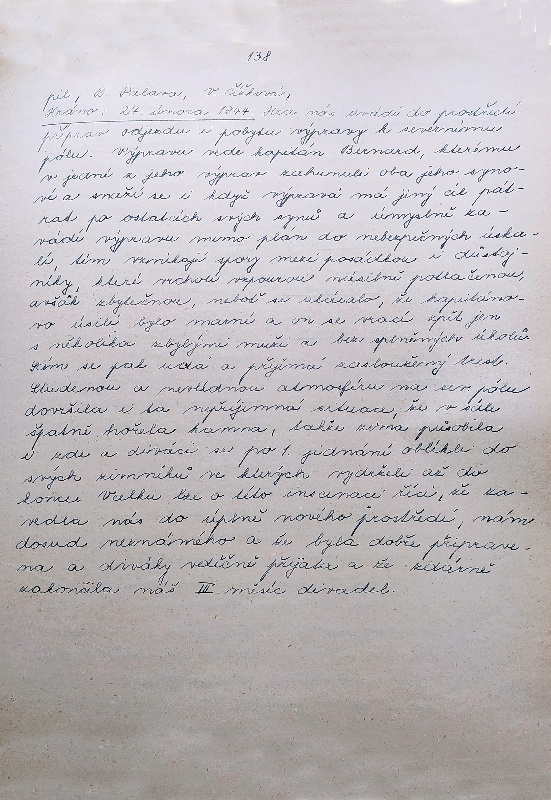 138
pil, A. Sklava, V. Čížková,
Hráno. 24. února 1944 Hra nás uvádí do prostředí
příprav odjezdu i pobytu výpravy k severnímu
pólu. Výpravu vede kapitán Bernard, kterému
v jedné z jeho výprav zahunuli oba jeho syno-
vé a snaží se i když výprava má jiný cíl pát-
rat po ostatcích svých synů a úmyslně za-
vádí výpravu mimo plán do nebezpečných úska-
lí, tím vznikají spory mezi posádkou i důstoj-
níky, kteří vzpourou násilně potlačenou,
avšak zbytečnou, neboť se ukázalo, že kapitáno-
vo úsilí bylo marné a on se vrací zpět jen
s několika zbylými muži a bez splněných úkolů.
se pak udá a přijímá zasloužený trest.
Studenou a nevlídnou atmosféru na sev. pólu
dovršila i ta nepříjemná situace, že v sále
špatně hořela kamna, takže zima působila
i zde a diváci se po 1. jednání oblékli do
svých zimníků ve kterých vydrželi až do
konce. Vcelku lze o této inscenaci říci, že za-
vedla nás do úplně nového prostředí, nám
dosud neznámého a že byla dobře připrave-
na a diváky vděčně přijata a že zdárně
zakončila náš III. měsíc divadel.